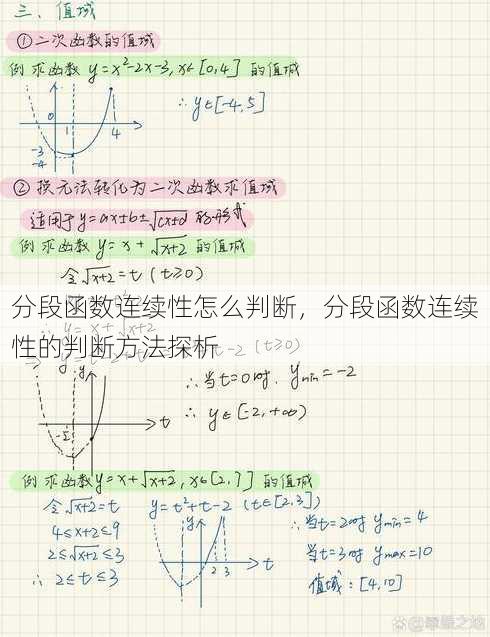 三、值域
①二次函数的值域
例 求函数 y=x²-2x-3, x∈[0,4] 的值域
∴ y∈[-4,5]
0 1 4
-3
-4
②换元法转化为二次函数求值域
适用于y=ax+b±√cx+d 的形式
例 求函数 y=x+√x+2 的值域
令√x+2=t (t≥0)
分段函数连续性怎么判断，分段函数连续
性的判断方法探析
t-2 (t≥0)
∴当t=0时, ymin=-2
y
t
∴ y∈[-2,+∞)
例 求函数y=x+√x+2, x∈[2,7] 的值域
令√x+2=t
4≤x+2≤9
2≤√x+2≤3
∴ 2≤t≤3
y=t²+t-2 (t∈[2,3])
y
2 3 t
∴当t=2时 ymin=4
当t=3时 ymax=10
值域：[4,10]